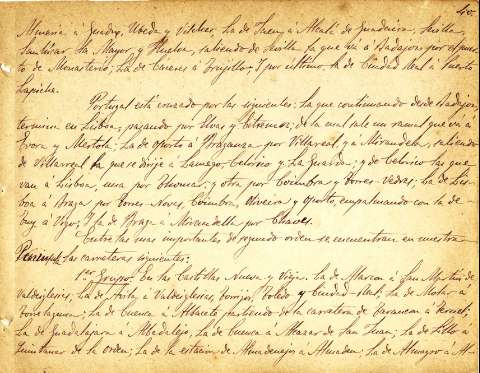 40
Almeria á Guadix, Ubeda y Vilches, La de Jaen á Alcalá de Guadaira, Sevilla,
Sanlúcar la Mayor y Huelva, saliendo de Sevilla la que vá á Badajoz por el puer-
to de Monasterio; La de Caceres á Trujillo, Y por ultimo, la de Ciudad Real á Puerto
Lapiche.
Portugal está cruzado por las siguientes: La que continuando desde Badajoz,
termina en Lisboa, pasando por Elvas y Estremoz; de la cual sale un ramal que vá á
Evora y Mertola; La de oporto á Braganza por Villarreal y á Mirandela, saliendo
de Villarreal la que se dirije á Lamego, Celorico y La Guarda; y de Celorico las que
van á Lisboa, una por Thomar; y otra por Coimbra y Torres-Vedras; La de Lis-
boa á Braga por Torres Noves, Coimbra, Oliveira y oporto, empalmando con la de
Tuy á Vigo; Y la de Braga á Mirandella por Chaves.
Entre las mas importantes de segundo orden se encuentran en nuestra
Peninsula las carreteras siguientes:
1.er Grupo. En las Castillas Nueva y Vieja. La de Alarcon á San Martin de
Valdeiglesias; La de Avila á Valdeiglesias, Torrijos, Toledo y Ciudad-Real; La de Molar á
Torrelaguna; La de Cuenca á Albacete partiendo de la carretera de Tarancon á Teruel;
La de Guadalajara á Albaladejo, La de Cuenca á Alcazar de San Juan; La de Lillo á
Quintanar de la orden; La de la estacion de Almadenejos á Almaden; La de Almagro á Al-